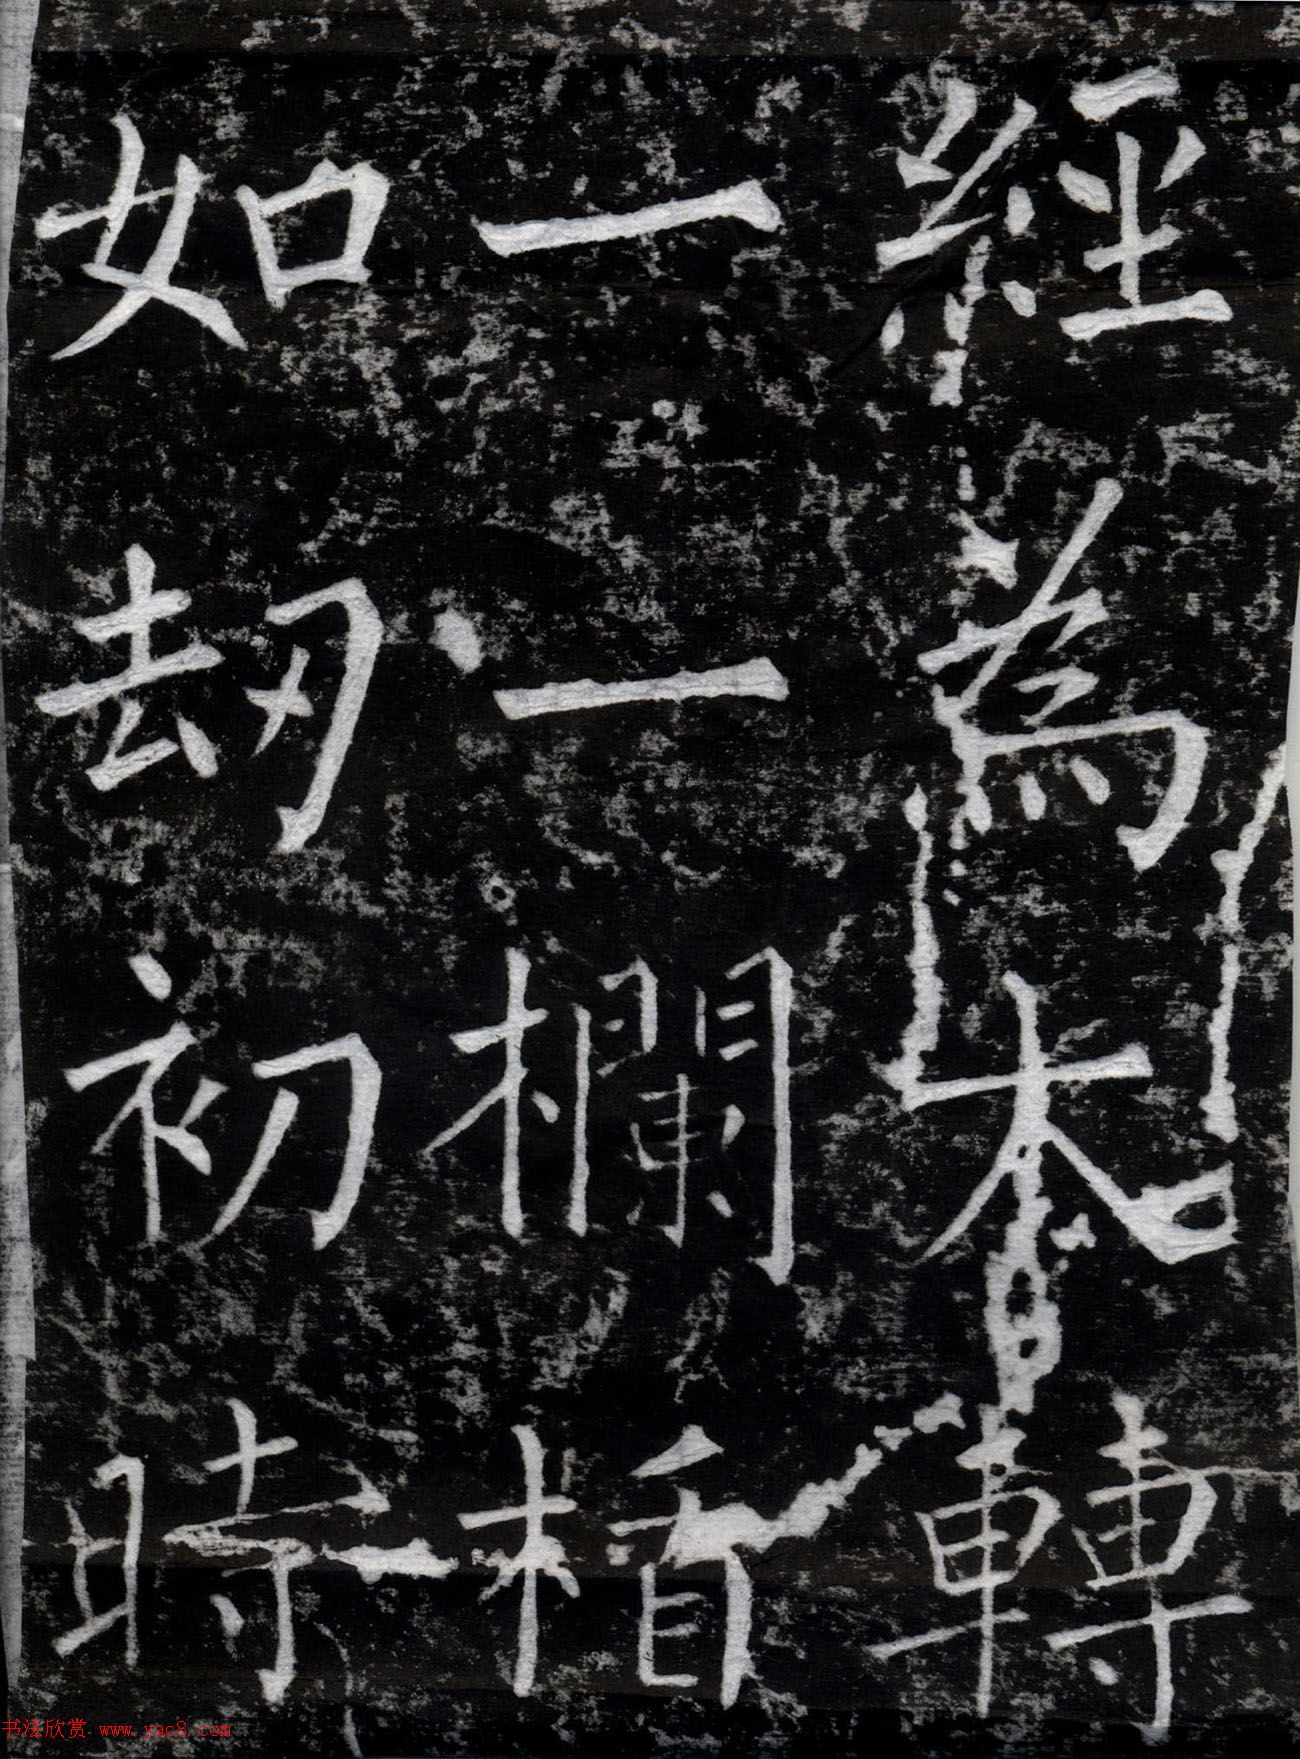 經為本轉
一一欄楯
如刼初時
书法欣赏 www.yac8.com